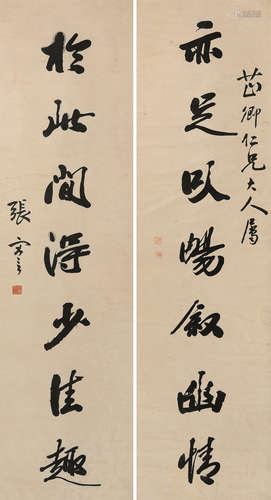 芷卿仁兄大人属
亦足以暢敘幽情
於此間得少佳趣
張